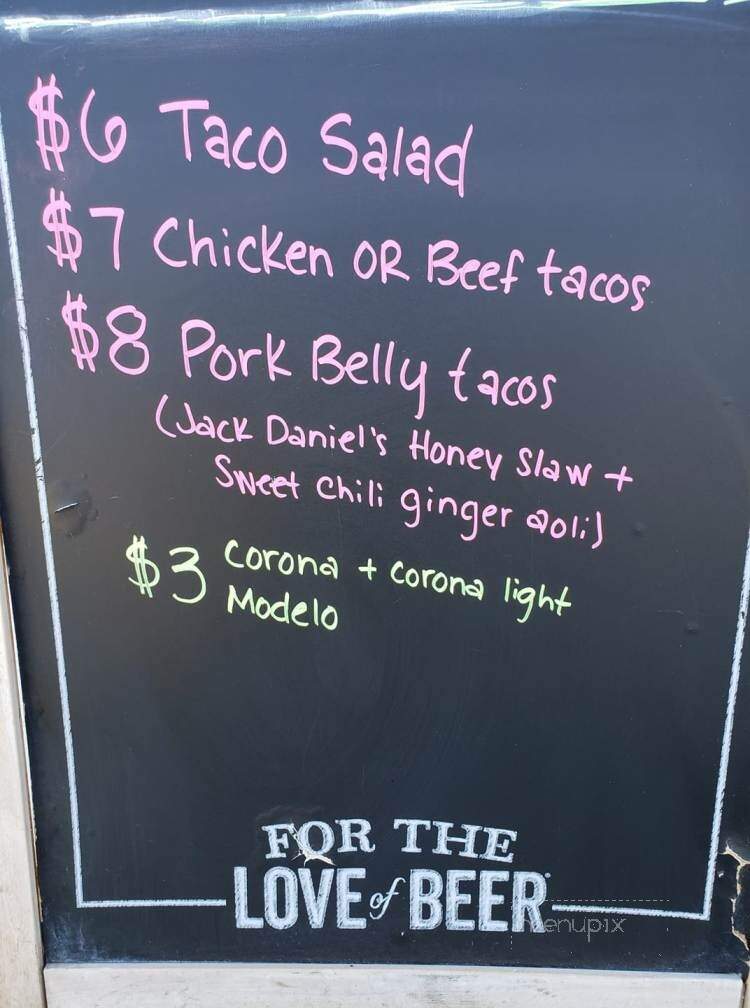 $6 Taco Salad
$7 Chicken OR Beef tacos
$8 Pork Belly tacos
(Jack Daniel's Honey Slaw +
Sweet Chili ginger aoli)
$3 Corona + Corona light
Modelo
FOR THE
LOVE of BEER
menupix